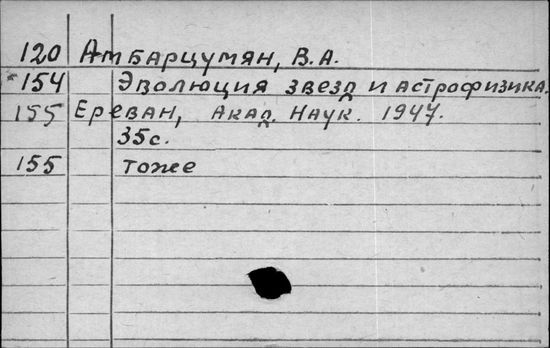 120 Амбарцумян, В.А.
154 Эволюция звезд и астрофизика.
155 Ереван, Акад. Наук. 1947.
35с.
155 тоже